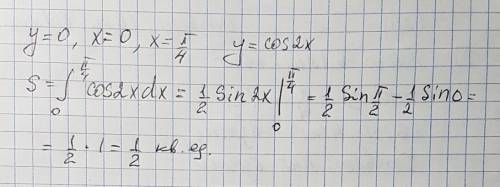 y=0, x=0, x=π/4   y=cos2x
S=∫₀^(π/4) cos2xdx = 1/2 Sin2x |₀^(π/4) = 1/2 Sin π/2 − 1/2 Sin0 =
= 1/2 · 1 = 1/2 кв. ед.